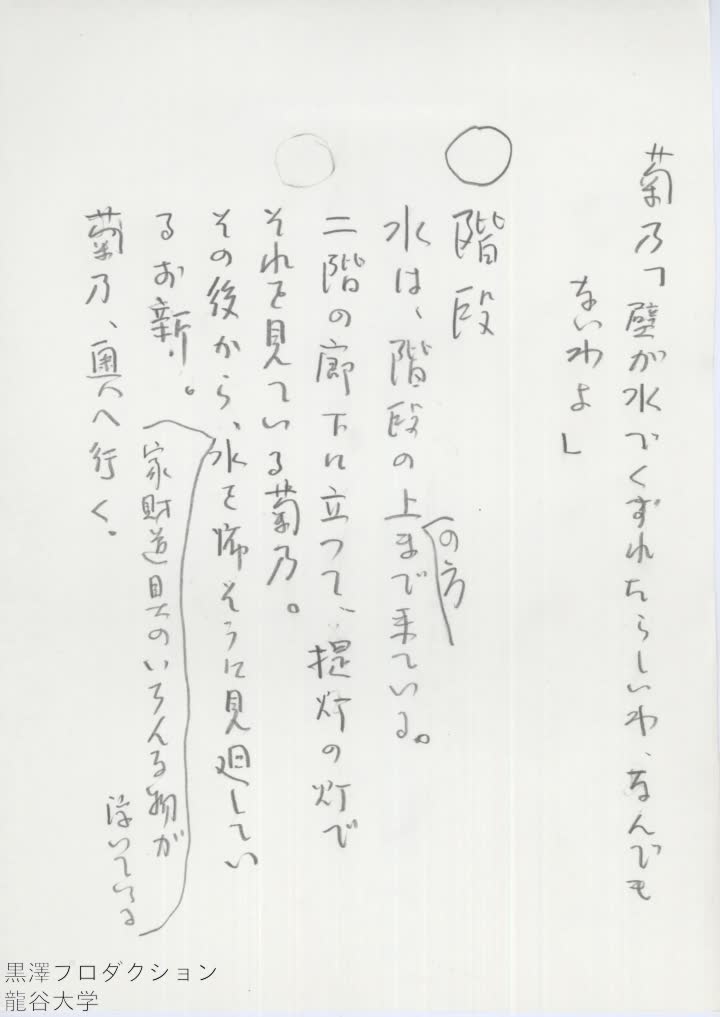 菊乃「壁が水でくずれたらしいわ、なんでも
ないわよ」
○ 階段
水は、階段の上まで来ている。
の方
二階の廊下に立つて、提灯の灯で
それを見ている菊乃。
その後から、水を怖そうに見廻してい
るお新。
家財道具のいろんな物が
浮いている
菊乃、奥へ行く。
黒澤プロダクション
龍谷大学